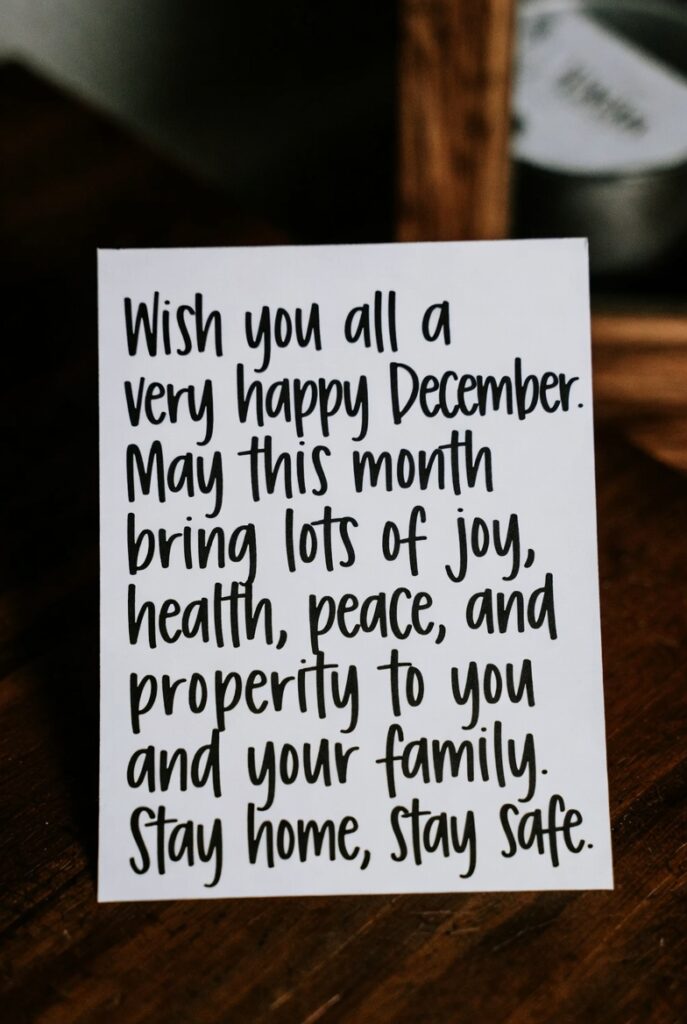 Wish you all a
very happy December.
May this month
bring lots of joy,
health, peace, and
properity to you
and your family.
Stay home, stay safe.